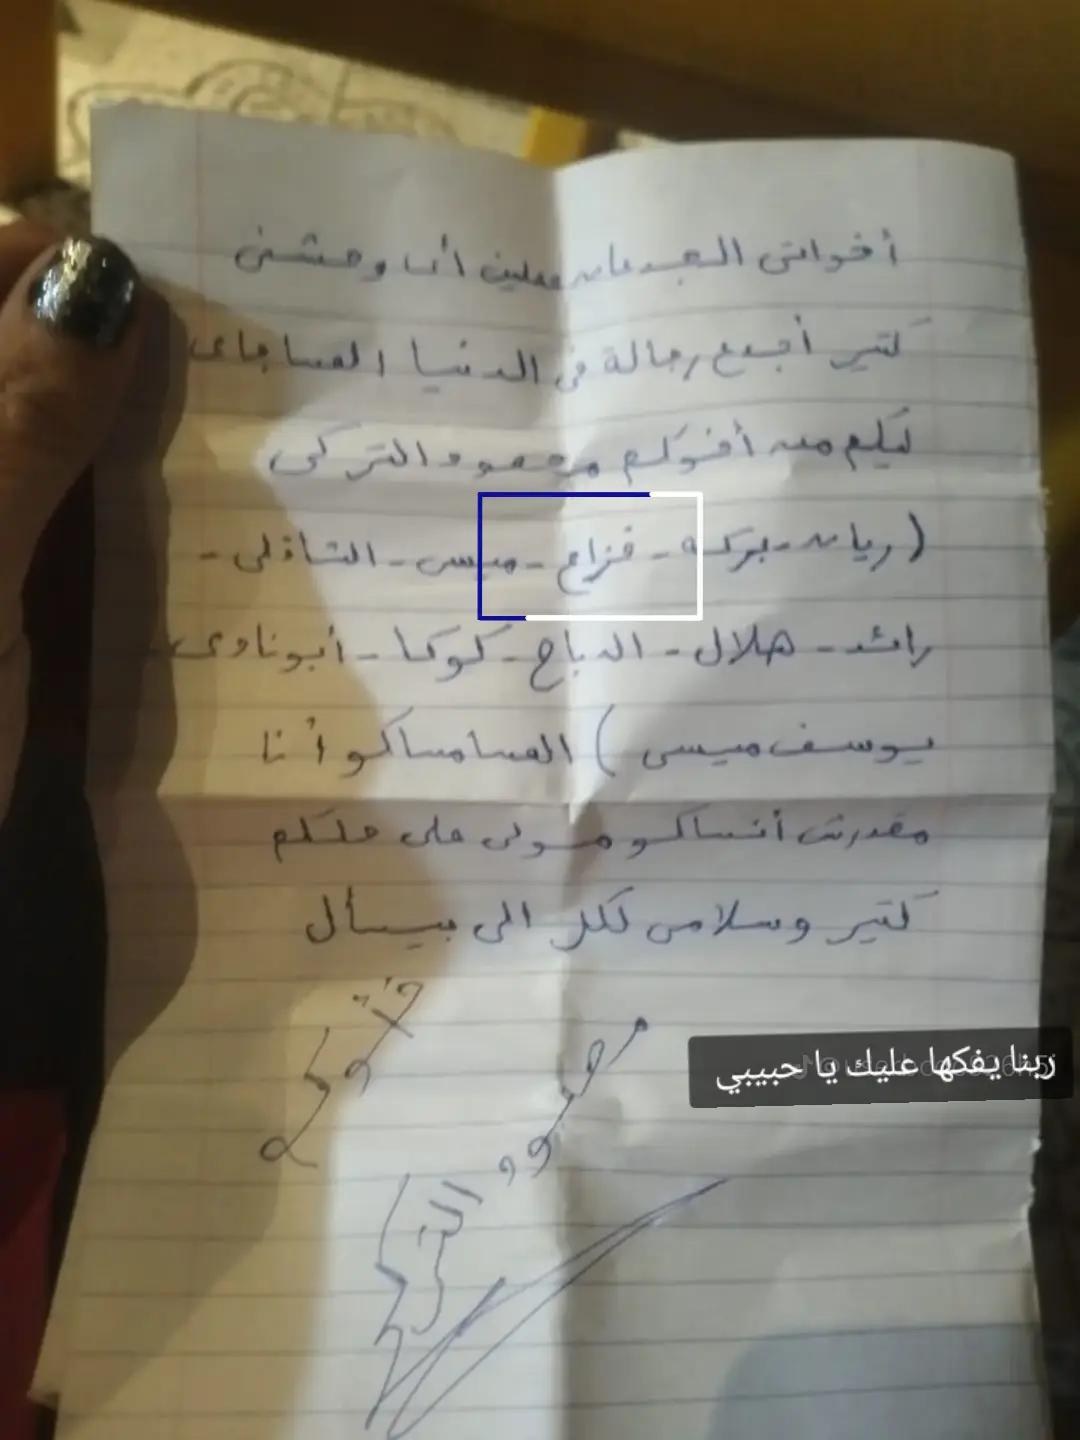 أخواتى الجدعان عملين أى وحشنى
كتير أجدع رجالة فى الدنيا المساجاى
ليكم من أخوكم محمود التركى
(ريان - بركة - فزاع - ميسى - الشاذلى -
رائد - هلال - الدباح - كوكا - أبوناوى
يوسف ميسى) المسامساكو أنا
مقدرش أنساكو مولى على ملكم
كتير وسلامى لكل الى بيسأل
أخوكم
محمود التركى
ربنا يفكها عليك يا حبيبي